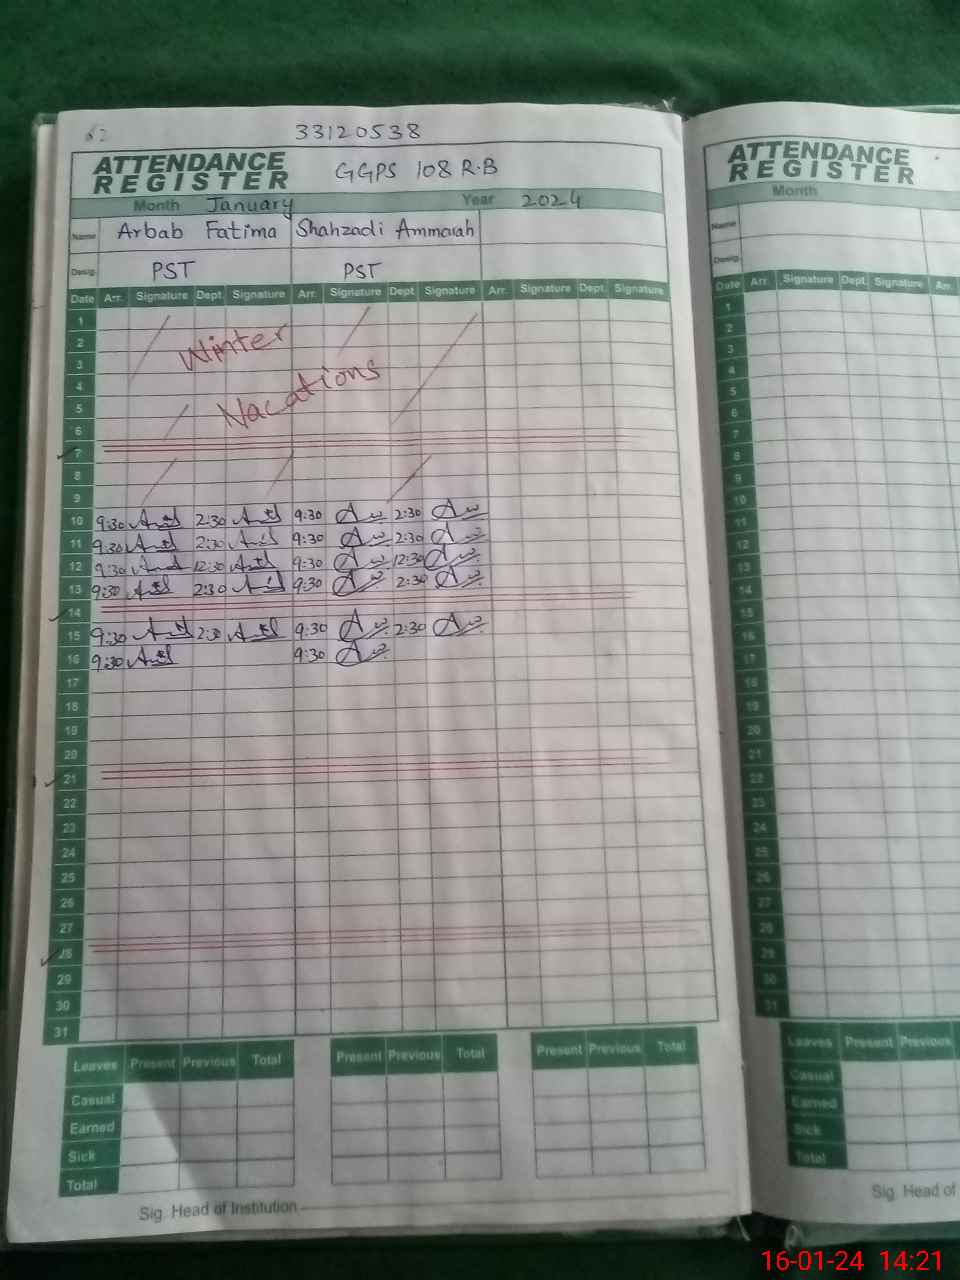 62
33120538
ATTENDANCE REGISTER
GGPS 108 R.B
Month January Year 2024
Name Arbab Fatima Shahzadi Ammarah
Desig. PST PST
Date Arr. Signature Dept. Signature Arr. Signature Dept. Signature Arr. Signature Dept. Signature
1
2
3
4
5
6
Winter
Vacations
7
8
9
10 9:30 2:30 9:30 2:30
11 9:30 2:30 9:30 2:30
12 9:30 12:30 9:30 12:30
13 9:30 2:30 9:30 2:30
14
15 9:30 2:30 9:30 2:30
16 9:30 9:30
17
18
19
20
21
22
23
24
25
26
27
28
29
30
31
Leaves Present Previous Total Present Previous Total Present Previous Total
Casual
Earned
Sick
Total
Sig. Head of Institution
ATTENDANCE REGISTER
Month
Name
Desig.
Date Arr. Signature Dept. Signature Arr.
1
2
3
4
5
6
7
8
9
10
11
12
13
14
15
16
17
18
19
20
21
22
23
24
25
26
27
28
29
30
31
Leaves Present Previous
Casual
Earned
Sick
Total
Sig. Head of
16-01-24 14:21